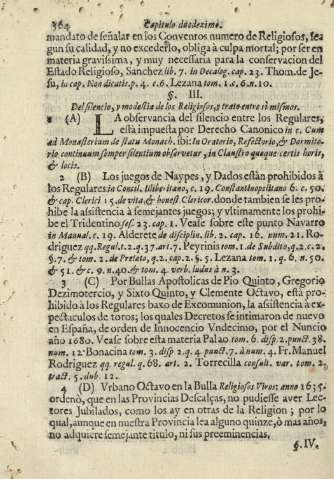 364 Capitulo duodezimo.
mandato de señalar en los Conventos numero de Religiosos, se-
gun su calidad, y no excederlo, obliga à culpa mortal; por ser en
materia gravissima, y muy necessaria para la conservacion del
Estado Religioso, Sanchez lib. 7. in Decalog. cap. 23. Thom. de Je-
su, in cap. Non dicatis. p. 4. c. 6. Lezana tom. 1. c. 6. n. 10.
§. III.
Del silencio, y modestia de los Religiosos, y trato entre si mismos.
1 (A) LA observancia del silencio entre los Regulares,
està impuesta por Derecho Canonico in c. Cum
ad Monasterium de statu Monach. ibi: In Oratorio, Refectorio, & Dormito-
rio continuum semper silentium observetur, in Claustro quoque certis horis,
& locis.
2 (B) Los juegos de Naypes, y Dados estàn prohibidos à
los Regulares in Concil. Illiberitano, c. 19. Constanthnopolitano 6. c. 50.
& cap. Clerici 15. de vita, & honest. Clericor. donde tambien se les pro-
hibe la asistencia à semejantes juegos; y vltimamente los prohi-
be el Tridentino, sess. 23. cap. 1. Vease sobre este punto Navarro
in Manual. c. 19. Alderete de disciplin. lib. 2. cap. 16. num. 21. Ro-
driguez qq. Regul. t. 2. q. 37. art. 7. Peyrinis tom. 1. de Subdito, q. 2. c. 2.
§. 7. & tom. 2. de Prelato, q. 2. cap. 2. §. 5. Lezana tom. 1. q. 6. n. 50.
& 51. & c. 9. n. 40. & tom. 4. verb. ludus à n. 3.
3 (C) Por Bullas Apostolicas de Pio Quinto, Gregorio
Dezimotercio, y Sixto Quinto, y Clemente Octavo, està pro-
hibido à los Regulares baxo de Excomunion, la assistencia à es-
pectaculos de toros; los quales Decretos se intimaron de nuevo
en España, de orden de Innocencio Vndecimo, por el Nuncio
año 1680. Vease sobre esta materia Palao tom. 6. disp. 2. punct. 38.
num. 12. Bonacina tom. 3. disp. 2. q. 4. punct. 7. à num. 4. Fr. Manuel
Rodriguez qq. regul. q. 68. art. 2. Torrecilla consult. var. tom. 2.
tract. 5. dub. 12.
4 (D) Vrbano Octavo en la Bulla Religiosos Viros; anno 1635.
ordenò, que en las Provincias Descalças, no pudiesse aver Lec-
tores Jubilados, como los ay en otras de la Religion; por lo
qual, aunque en nuestra Provincia lea alguno quinze, ò mas años,
no adquiere semejante titulo, ni sus preeminencias.
§. IV.